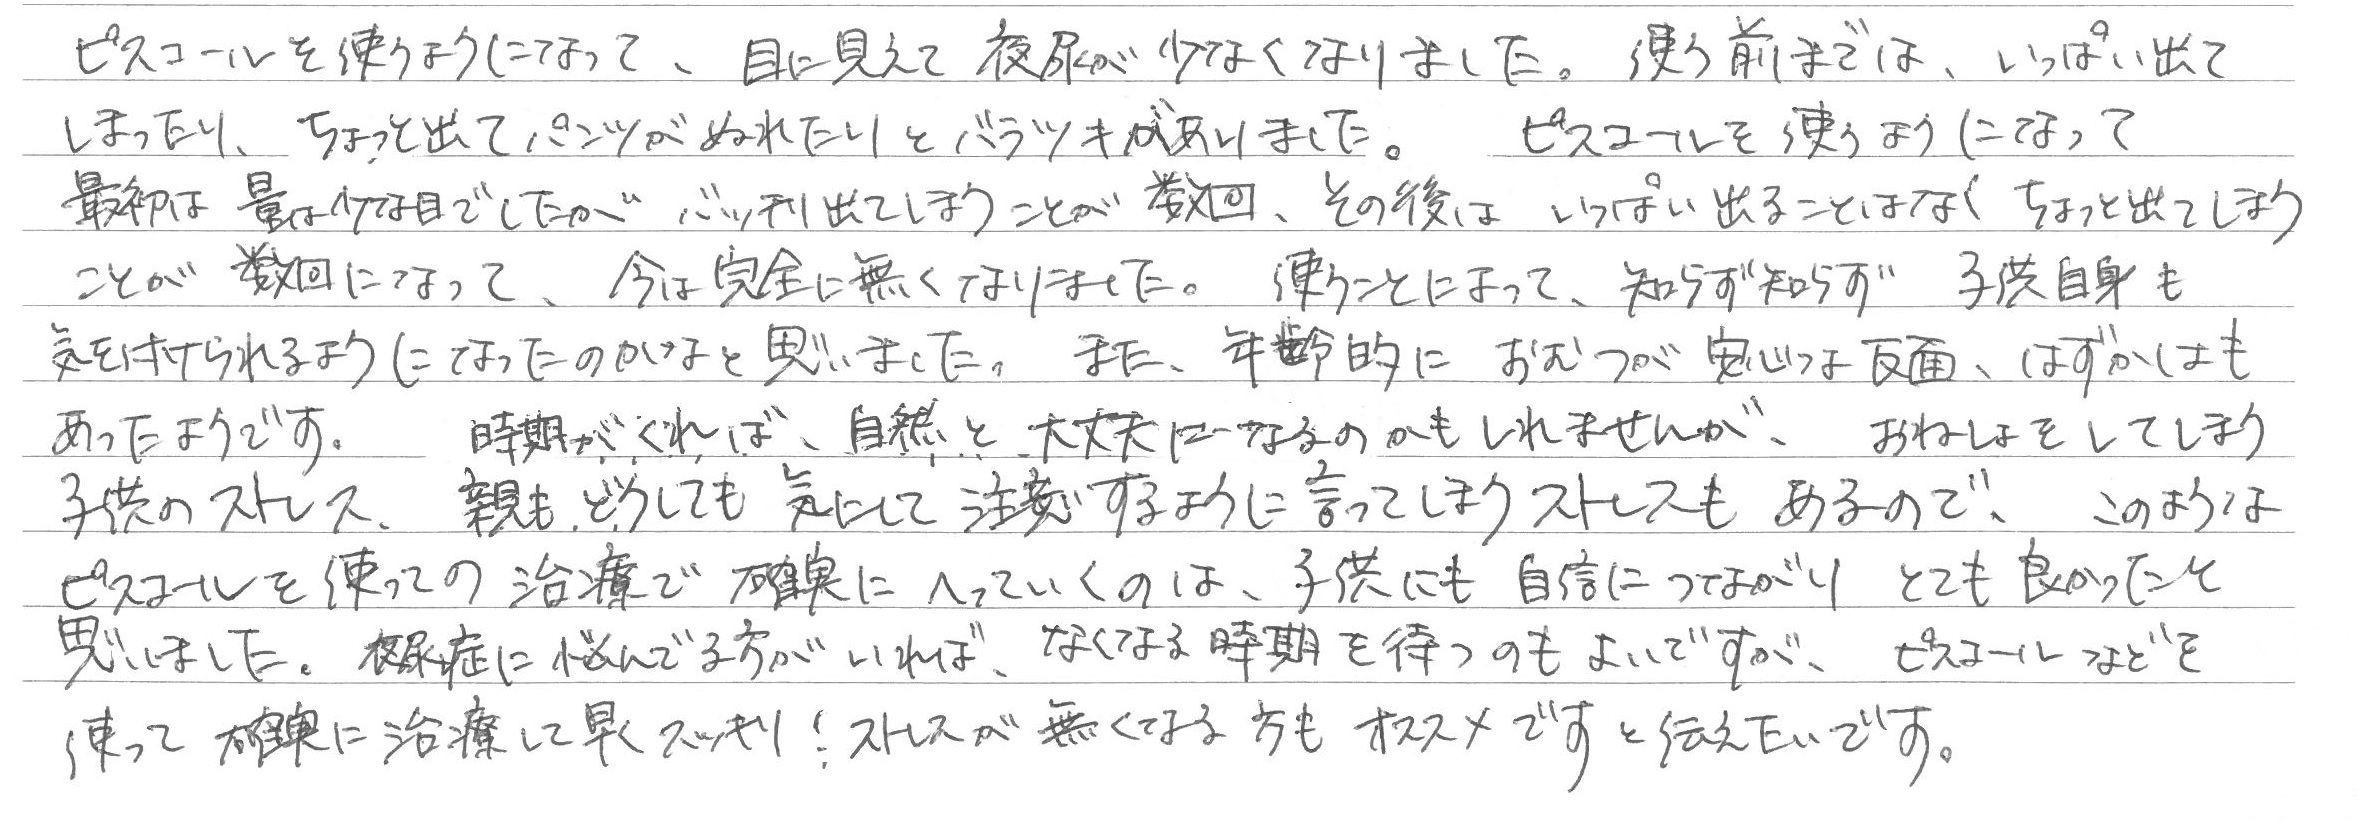 ピスコールを使うようになって、目に見えて夜尿が少なくなりました。使う前までは、いっぱい出て
しまったり、ちょっと出てパンツがぬれたりとバラツキがありました。 ピスコールを使うようになって
最初は量は少な目でしたがバッチリ出てしまうことが数回、その後はいっぱい出ることはなくちょっと出てしまう
ことが数回になって、今は完全に無くなりました。使うことによって、知らず知らず子供自身も
気を付けられるようになったのかなと思いました。また、年齢的におむつが安心な反面、はずかしはも
あったようです。 時期がくれば、自然と大丈夫になるのかもしれませんが、おねしょをしてしまう
子供のストレス、親もどうしても気にして注意するように言ってしまうストレスもあるので、このような
ピスコールを使っての治療で確実にへっていくのは、子供にも自信につながりとても良かったと
思いました。夜尿症に悩んでる方がいれば、なくなる時期を待つのもよいですが、ピスコールなどを
使って確実に治療して早くスッキリ!ストレスが無くなる方もオススメですと伝えたいです。